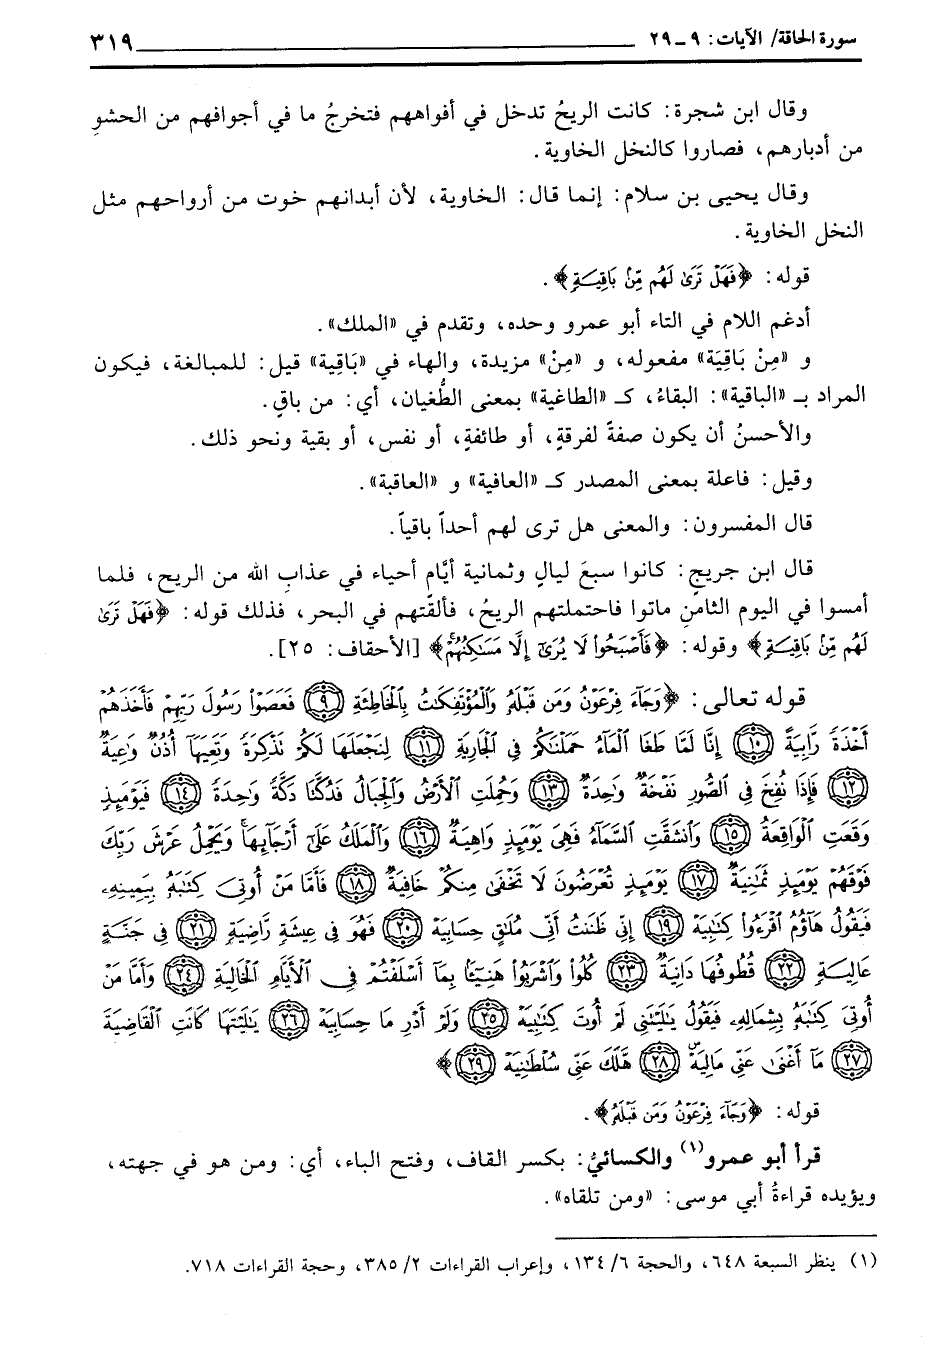 سورة الحاقة/ الآيات: ٩ ـ ٢٩ ٣١٩
وقال ابن شجرة: كانت الريحُ تدخل في أفواههم فتخرجُ ما في أجوافهم من الحشوِ
من أدبارهم، فصاروا كالنخل الخاوية.
وقال يحيى بن سلام: إنما قال: الخاوية، لأن أبدانهم خوت من أرواحهم مثل
النخل الخاوية.
قوله: ﴿فَهَلْ تَرَىٰ لَهُم مِّنۢ بَاقِيَةٍ﴾.
أدغم اللام في التاء أبو عمرو وحده، وتقدم في «الملك».
و «مِنْ بَاقِيَة» مفعوله، و «مِنْ» مزيدة، والهاء في «بَاقِية» قيل: للمبالغة، فيكون
المراد بـ «الباقية»: البقاءُ، كـ «الطاغية» بمعنى الطُّغيان، أي: من باقٍ.
والأحسنُ أن يكون صفةً لفرقةٍ، أو طائفةٍ، أو نفس، أو بقية ونحو ذلك.
وقيل: فاعلة بمعنى المصدر كـ «العافية» و «العاقبة».
قال المفسرون: والمعنى هل ترى لهم أحداً باقياً.
قال ابن جريجٍ: كانوا سبعَ ليالٍ وثمانية أيَّام أحياء في عذابِ الله من الريح، فلما
أمسوا في اليوم الثامنِ ماتوا فاحتملتهم الريحُ، فألقتهم في البحر، فذلك قوله: ﴿فَهَلْ تَرَىٰ
لَهُم مِّنۢ بَاقِيَةٍ﴾ وقوله: ﴿فَأَصْبَحُوا۟ لَا يُرَىٰٓ إِلَّا مَسَٰكِنُهُمْ﴾ [الأحقاف: ٢٥].
قوله تعالى: ﴿وَجَآءَ فِرْعَوْنُ وَمَن قَبْلَهُۥ وَٱلْمُؤْتَفِكَٰتُ بِٱلْخَاطِئَةِ ٩ فَعَصَوْا۟ رَسُولَ رَبِّهِمْ فَأَخَذَهُمْ
أَخْذَةً رَّابِيَةً ١٠ إِنَّا لَمَّا طَغَا ٱلْمَآءُ حَمَلْنَٰكُمْ فِى ٱلْجَارِيَةِ ١١ لِنَجْعَلَهَا لَكُمْ تَذْكِرَةً وَتَعِيَهَآ أُذُنٌ وَٰعِيَةٌ
١٢ فَإِذَا نُفِخَ فِى ٱلصُّورِ نَفْخَةٌ وَٰحِدَةٌ ١٣ وَحُمِلَتِ ٱلْأَرْضُ وَٱلْجِبَالُ فَدُكَّتَا دَكَّةً وَٰحِدَةً ١٤ فَيَوْمَئِذٍ
وَقَعَتِ ٱلْوَاقِعَةُ ١٥ وَٱنشَقَّتِ ٱلسَّمَآءُ فَهِىَ يَوْمَئِذٍ وَاهِيَةٌ ١٦ وَٱلْمَلَكُ عَلَىٰٓ أَرْجَآئِهَا وَيَحْمِلُ عَرْشَ رَبِّكَ
فَوْقَهُمْ يَوْمَئِذٍ ثَمَٰنِيَةٌ ١٧ يَوْمَئِذٍ تُعْرَضُونَ لَا تَخْفَىٰ مِنكُمْ خَافِيَةٌ ١٨ فَأَمَّا مَنْ أُوتِىَ كِتَٰبَهُۥ بِيَمِينِهِۦ
فَيَقُولُ هَآؤُمُ ٱقْرَءُوا۟ كِتَٰبِيَهْ ١٩ إِنِّى ظَنَنتُ أَنِّى مُلَٰقٍ حِسَابِيَهْ ٢٠ فَهُوَ فِى عِيشَةٍ رَّاضِيَةٍ ٢١ فِى جَنَّةٍ
عَالِيَةٍ ٢٢ قُطُوفُهَا دَانِيَةٌ ٢٣ كُلُوا۟ وَٱشْرَبُوا۟ هَنِيٓـًٔۢا بِمَآ أَسْلَفْتُمْ فِى ٱلْأَيَّامِ ٱلْخَالِيَةِ ٢٤ وَأَمَّا مَنْ
أُوتِىَ كِتَٰبَهُۥ بِشِمَالِهِۦ فَيَقُولُ يَٰلَيْتَنِى لَمْ أُوتَ كِتَٰبِيَهْ ٢٥ وَلَمْ أَدْرِ مَا حِسَابِيَهْ ٢٦ يَٰلَيْتَهَا كَانَتِ ٱلْقَاضِيَةَ
٢٧ مَآ أَغْنَىٰ عَنِّى مَالِيَهْ ٢٨ هَلَكَ عَنِّى سُلْطَٰنِيَهْ ٢٩﴾
قوله: ﴿وَجَآءَ فِرْعَوْنُ وَمَن قَبْلَهُۥ﴾.
قرأ أبو عمرو(١) والكسائيُّ: بكسر القاف، وفتح الباء، أي: ومن هو في جهته،
ويؤيده قراءةُ أبي موسى: «ومن تلقاه».
(١) ينظر السبعة ٦٤٨، والحجة ٦/ ١٣٤، وإعراب القراءات ٢/ ٣٨٥، وحجة القراءات ٧١٨.